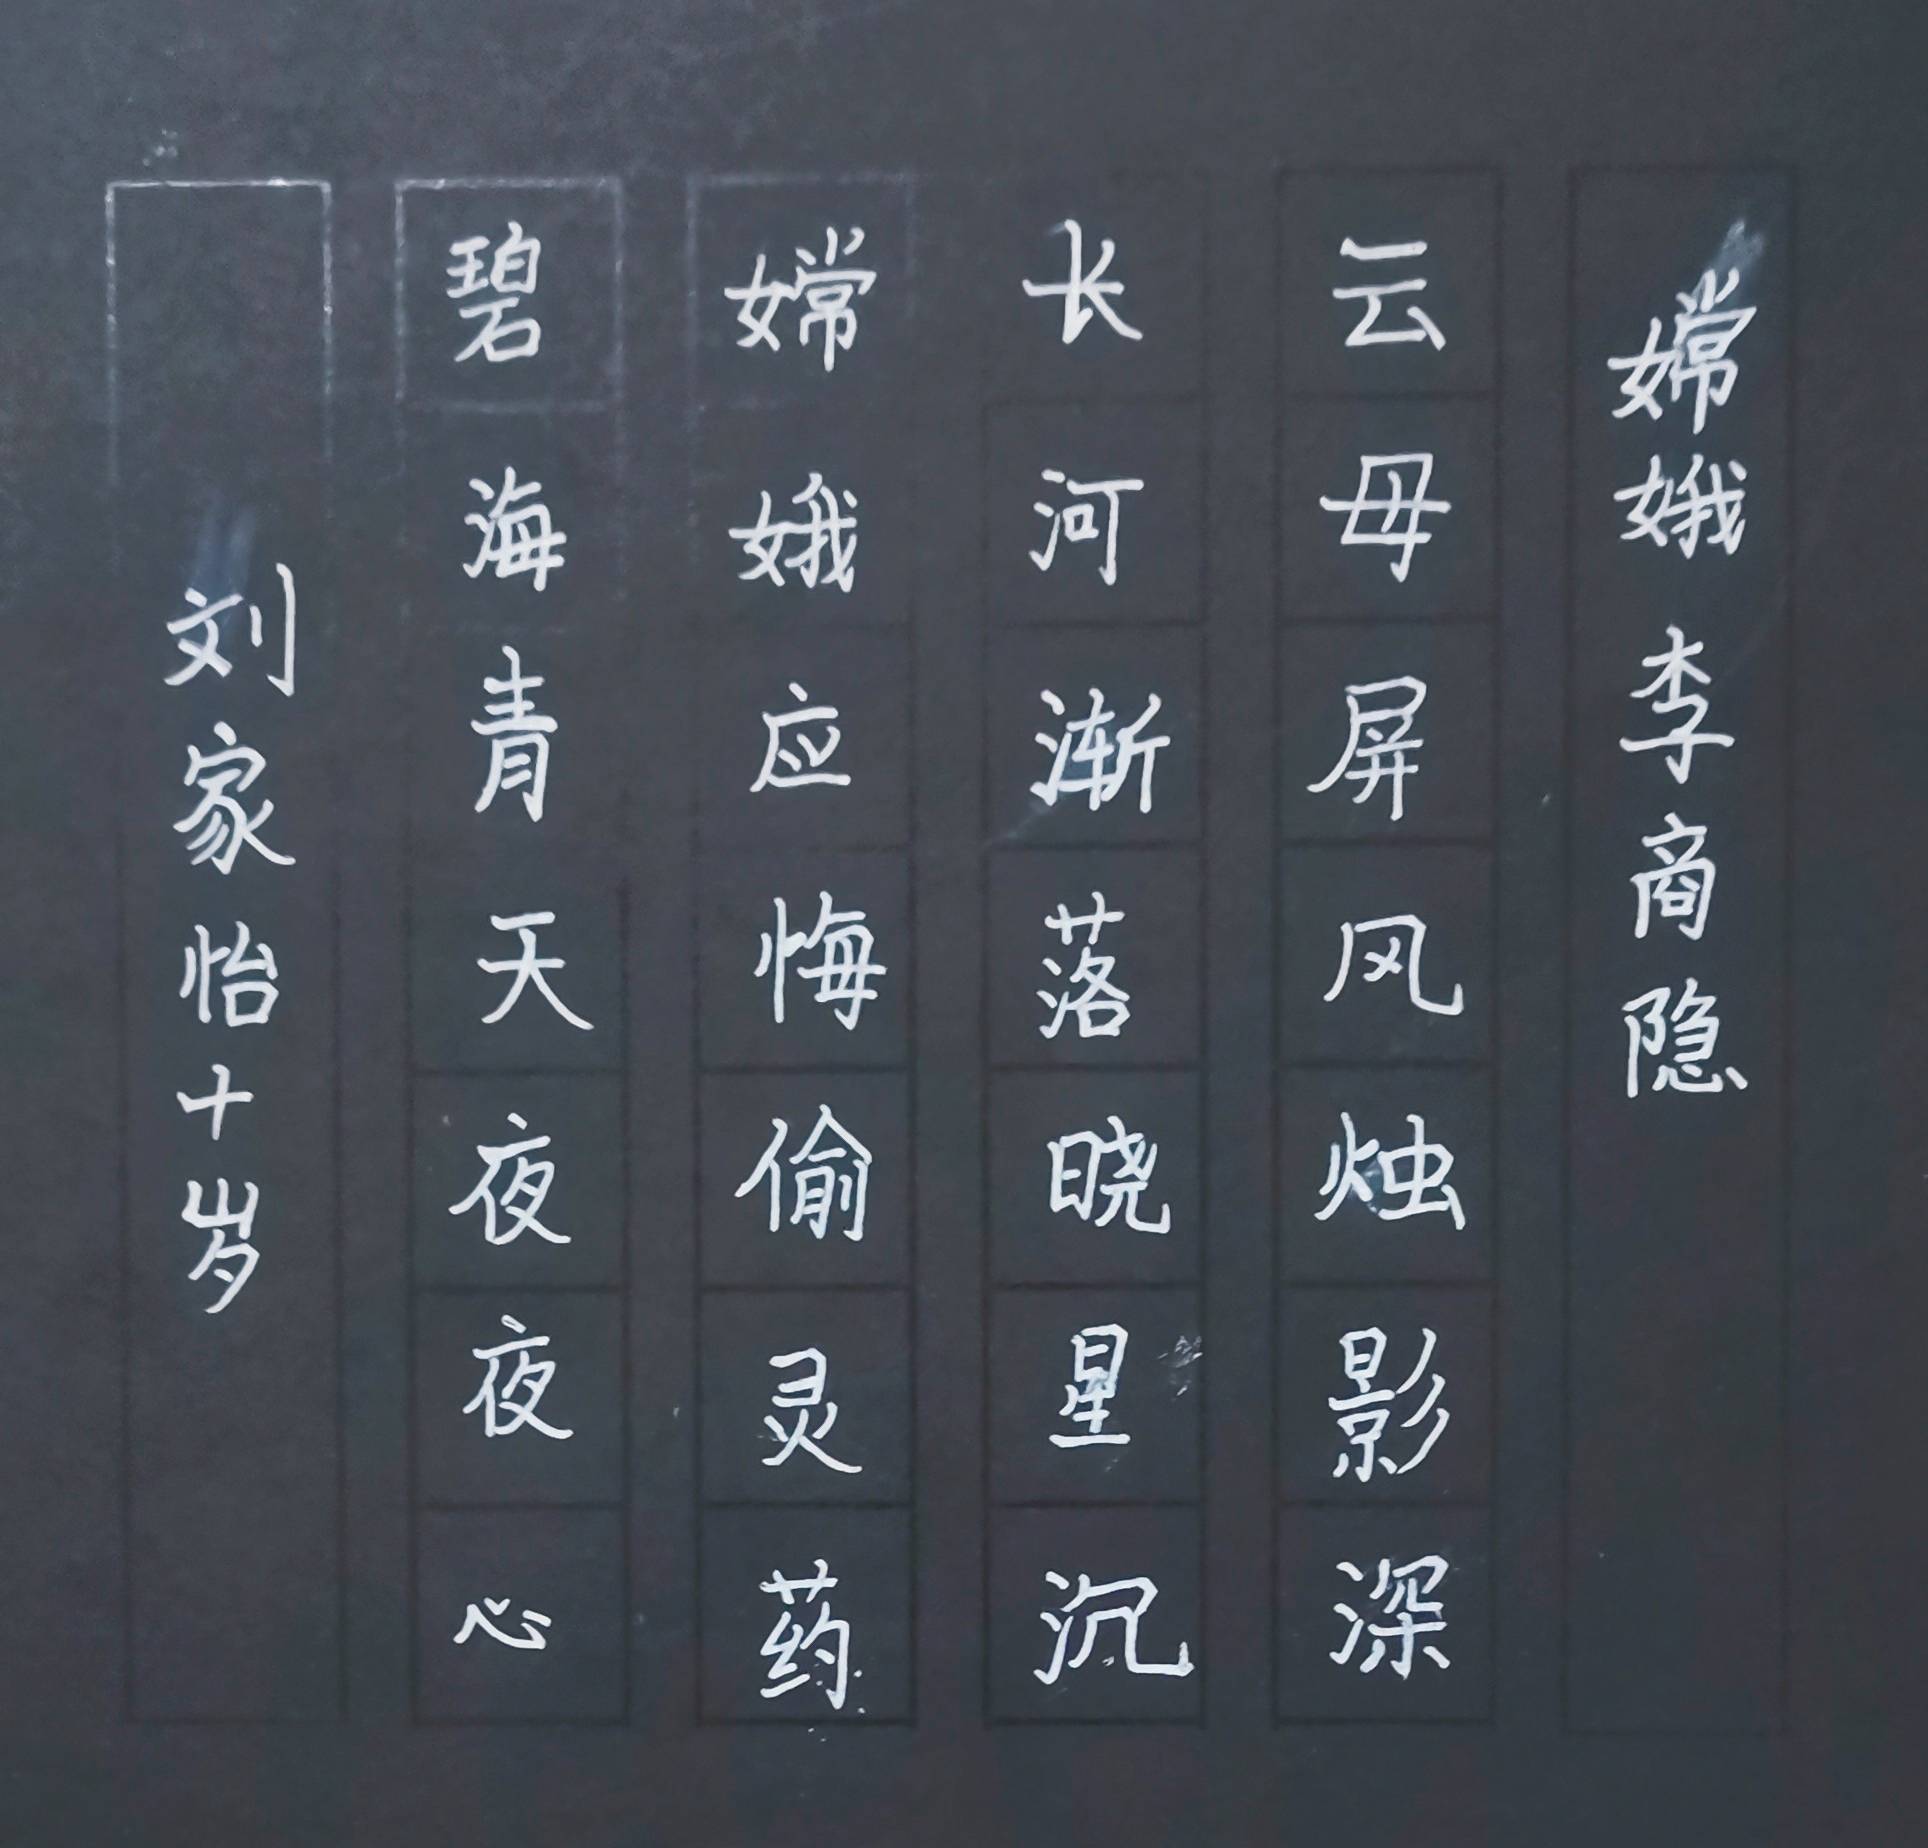 嫦娥 李商隐
云母屏风烛影深
长河渐落晓星沉
嫦娥应悔偷灵药
碧海青天夜夜心
刘家怡十岁